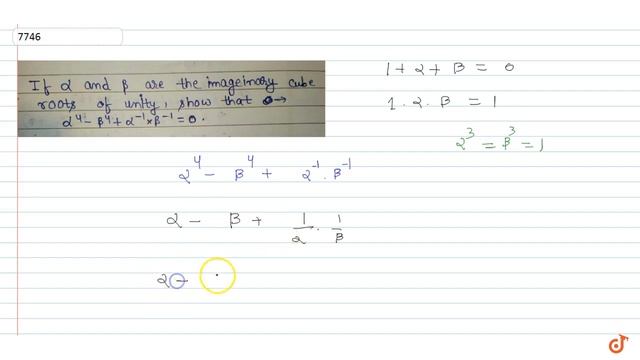 7746
If α and β are the imageinary cube
roots of unity, show that
α⁴ - β⁴ + α⁻¹ × β⁻¹ = 0.
1 + α + β = 0
1 . α . β = 1
α³ = β³ = 1
α⁴ - β⁴ + α⁻¹ . β⁻¹
α - β + 1/α . 1/β
α -
d